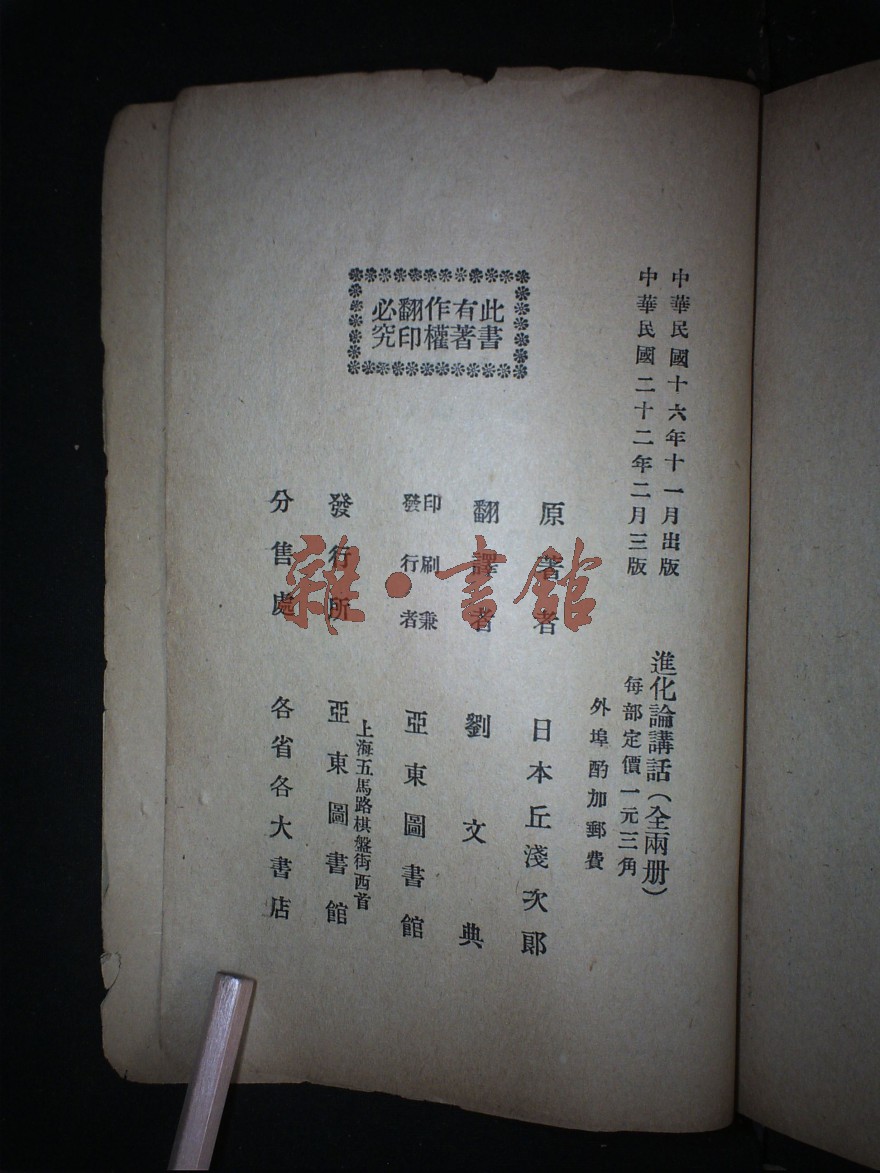 中華民國十六年十一月出版
中華民國二十二年二月三版
進化論講話(全兩册)
每部定價一元三角
外埠酌加郵費
此書
有著
作權
翻印
必究
原著者 日本丘淺次郎
翻譯者 劉文典
印刷兼
發行者 亞東圖書館
上海五馬路棋盤街西首
發行所 亞東圖書館
分售處 各省各大書店
雜·書館